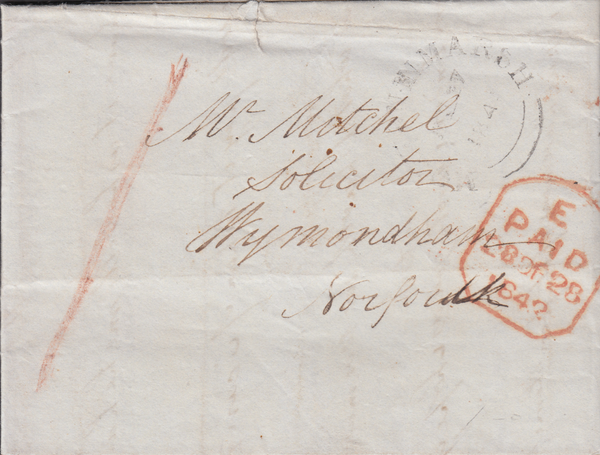 Mr. Motchel
Solicitor
Wymondham
Norfolk
E
PAID
28 28
1842